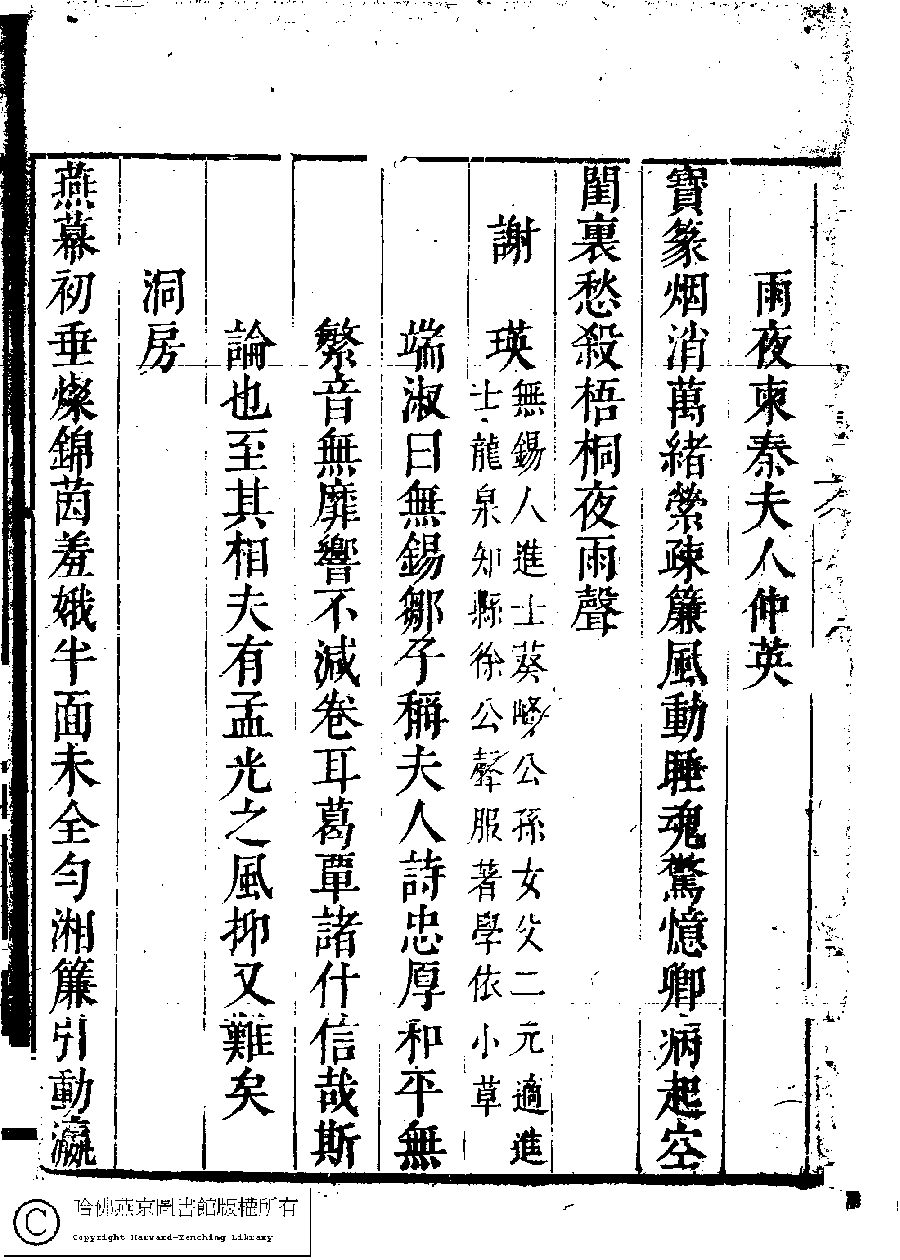 雨夜柬秦夫人仲英
寶篆烟消萬緒縈疎簾風動睡魂驚憶卿病起空
閨裏愁殺梧桐夜雨聲
謝瑛
無錫人進士葵峰公孫女父二元適進
士龍泉知縣徐公聲服著學依小草
端淑曰無錫鄒子稱夫人詩忠厚和平無
繁音無靡響不減卷耳葛覃諸什信哉斯
論也至其相夫有孟光之風抑又難矣
洞房
燕幕初垂燦錦茵羞娥半面未全勻湘簾引動瀛
哈佛燕京圖書館版權所有
Copyright Harvard-Yenching Library